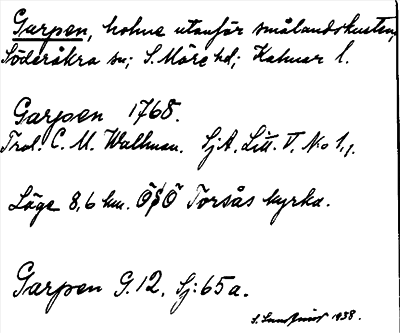 Garpen, holme utanför smålandskusten,
Söderåkra sn; S. Möre hd; Kalmar l.
Garpen 1768.
Trol. C. M. Wallman. SjA. Litt. V. No 1,1.
Läge 8,6 km. ÖSÖ Torsås kyrka.
Garpen G.12, Sj: 65a.
1938.